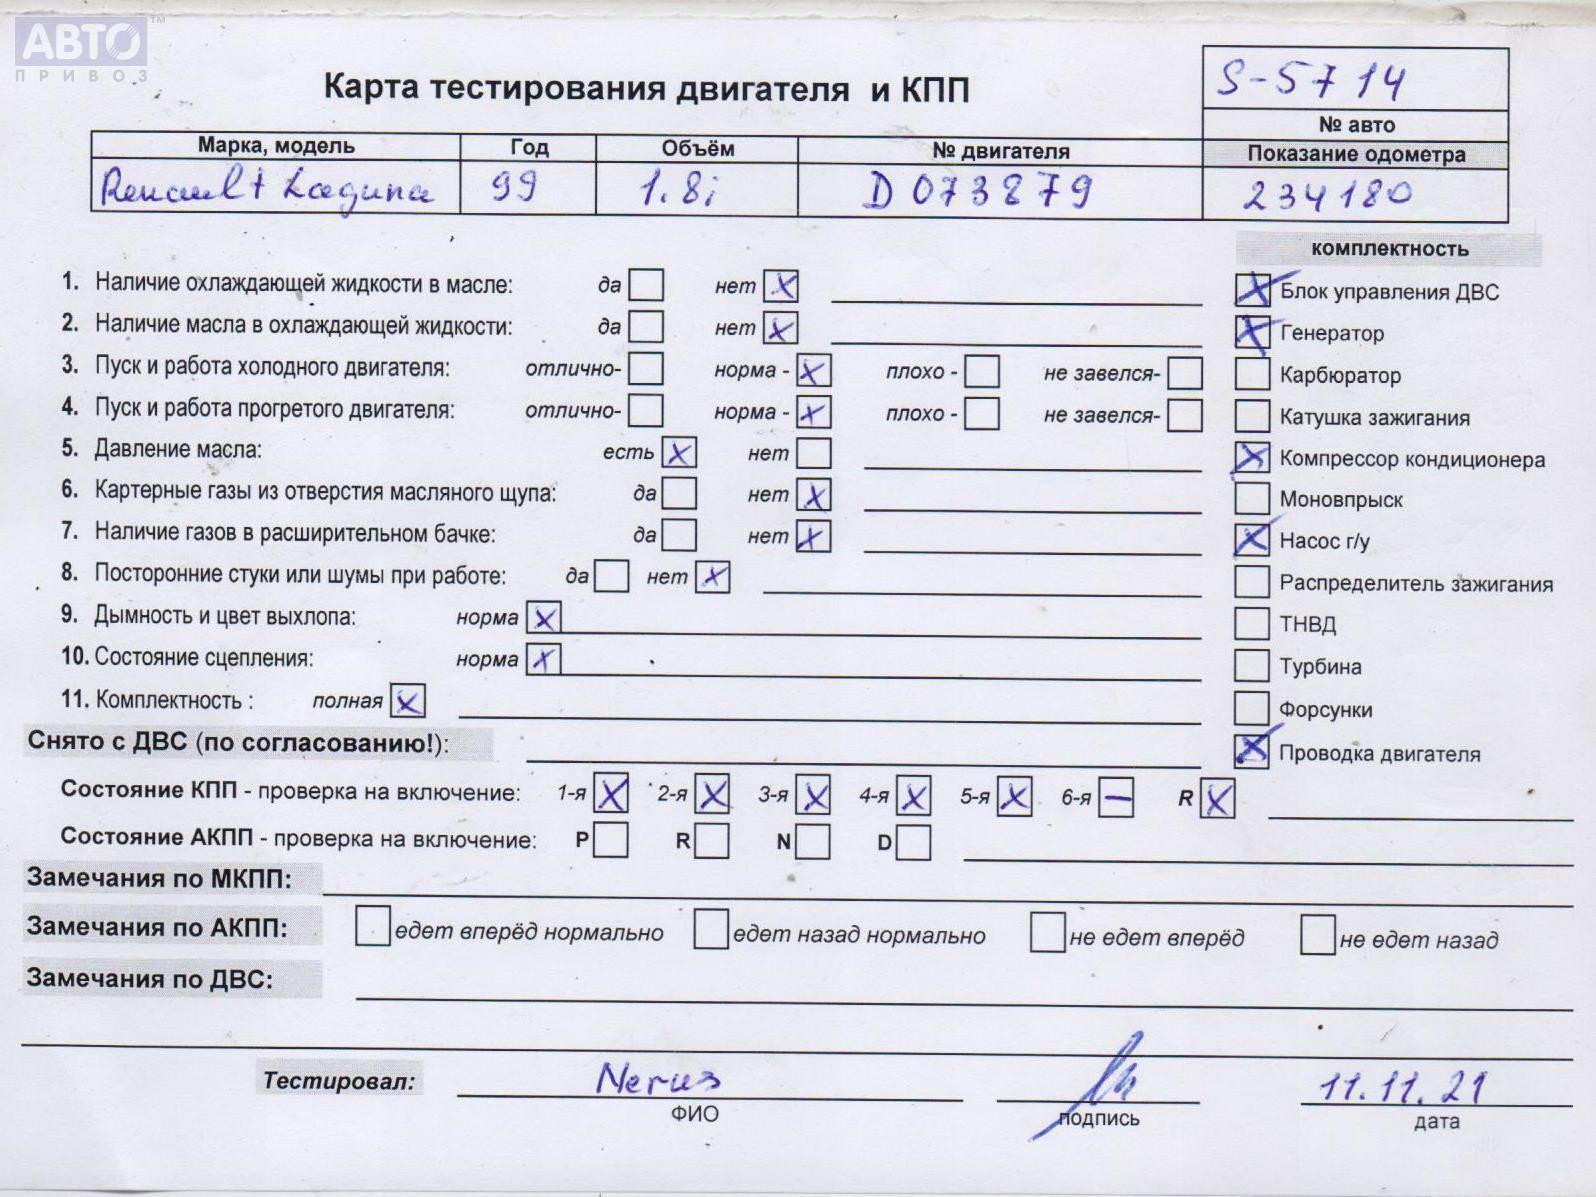 АВТО™
ПРИВОЗ
Карта тестирования двигателя и КПП
S-5714
№ авто
Марка, модель Год Объём № двигателя Показание одометра
Renault Laguna 99 1.8i D073879 234180
комплектность
1. Наличие охлаждающей жидкости в масле: да нет X
X Блок управления ДВС
2. Наличие масла в охлаждающей жидкости: да нет X
X Генератор
3. Пуск и работа холодного двигателя: отлично- норма - X плохо - не завелся-
Карбюратор
4. Пуск и работа прогретого двигателя: отлично- норма - X плохо - не завелся-
Катушка зажигания
5. Давление масла: есть X нет
X Компрессор кондиционера
6. Картерные газы из отверстия масляного щупа: да нет X
Моновпрыск
7. Наличие газов в расширительном бачке: да нет X
X Насос г/у
8. Посторонние стуки или шумы при работе: да нет X
Распределитель зажигания
9. Дымность и цвет выхлопа: норма X
ТНВД
10. Состояние сцепления: норма X
Турбина
11. Комплектность : полная X
Форсунки
Снято с ДВС (по согласованию!):
X Проводка двигателя
Состояние КПП - проверка на включение: 1-я X 2-я X 3-я X 4-я X 5-я X 6-я — R X
Состояние АКПП - проверка на включение: P R N D
Замечания по МКПП:
Замечания по АКПП: едет вперёд нормально едет назад нормально не едет вперёд не едет назад
Замечания по ДВС:
Тестировал: 11.11.21
ФИО подпись дата